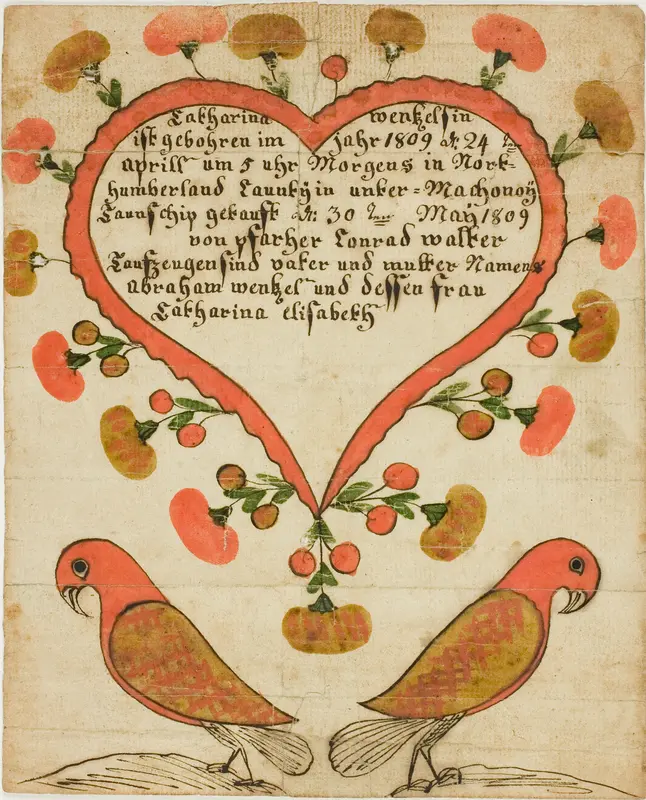 Catharina wentzelsin
ist gebohren im jahr 1809 d: 24 ten
aprill um 5 uhr Morgens in Nort-
humberland Caunty in unter=Machonoÿ
Taunschip getauft d: 30 ten Maÿ 1809
von pfarher Conrad walter
Taufzeugen sind vater und mutter Namens
abraham wentzel und dessen frau
Catharina elisabeth